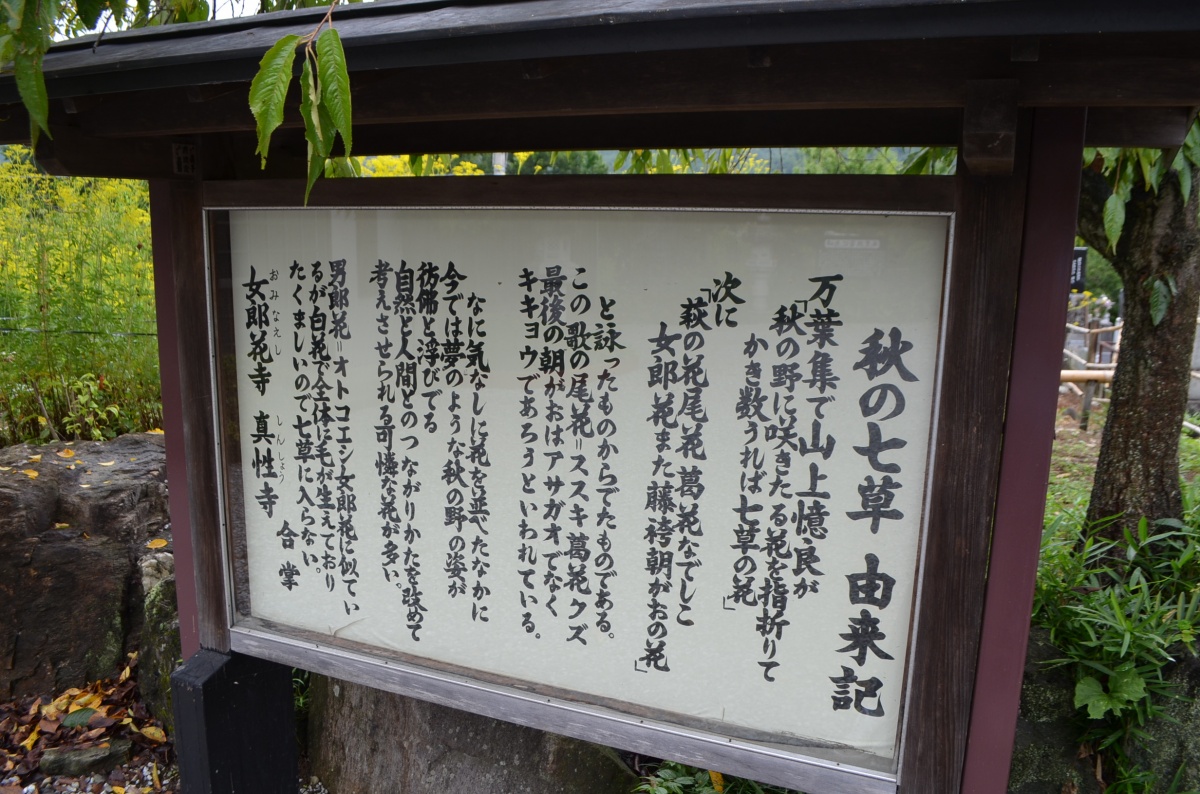 秋の七草 由来記
万葉集で山上憶良が
「秋の野に咲きたる花を指折りて
かき数うれば七草の花」
次に
「萩の花尾花葛花なでしこ
女郎花また藤袴朝がおの花」
と詠ったものからでたものである。
この歌の尾花=ススキ葛花クズ
最後の朝がおはアサガオでなく
キキョウであろうといわれている。
なに気なしに花を並べたなかに
今では夢のような秋の野の姿が
彷彿と浮びでる
自然と人間とのつながりかたを改めて
考えさせられる可憐な花が多い。
男郎花=オトコエシ女郎花に似てい
るが白花で全体に毛が生えており
たくましいので七草に入らない。
おみなえし しんしょう
女郎花寺 真性寺 合掌